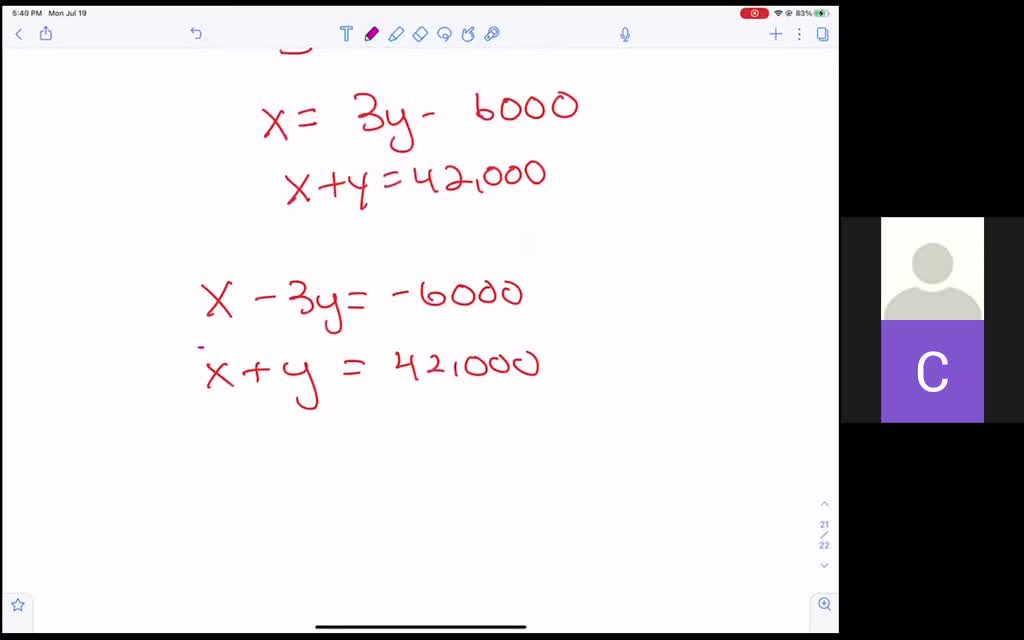 5:40 PM Mon Jul 19
83%
T
x = 3y - 6000
x + y = 42,000
x - 3y = -6000
x + y = 42,000
C
21
/
22